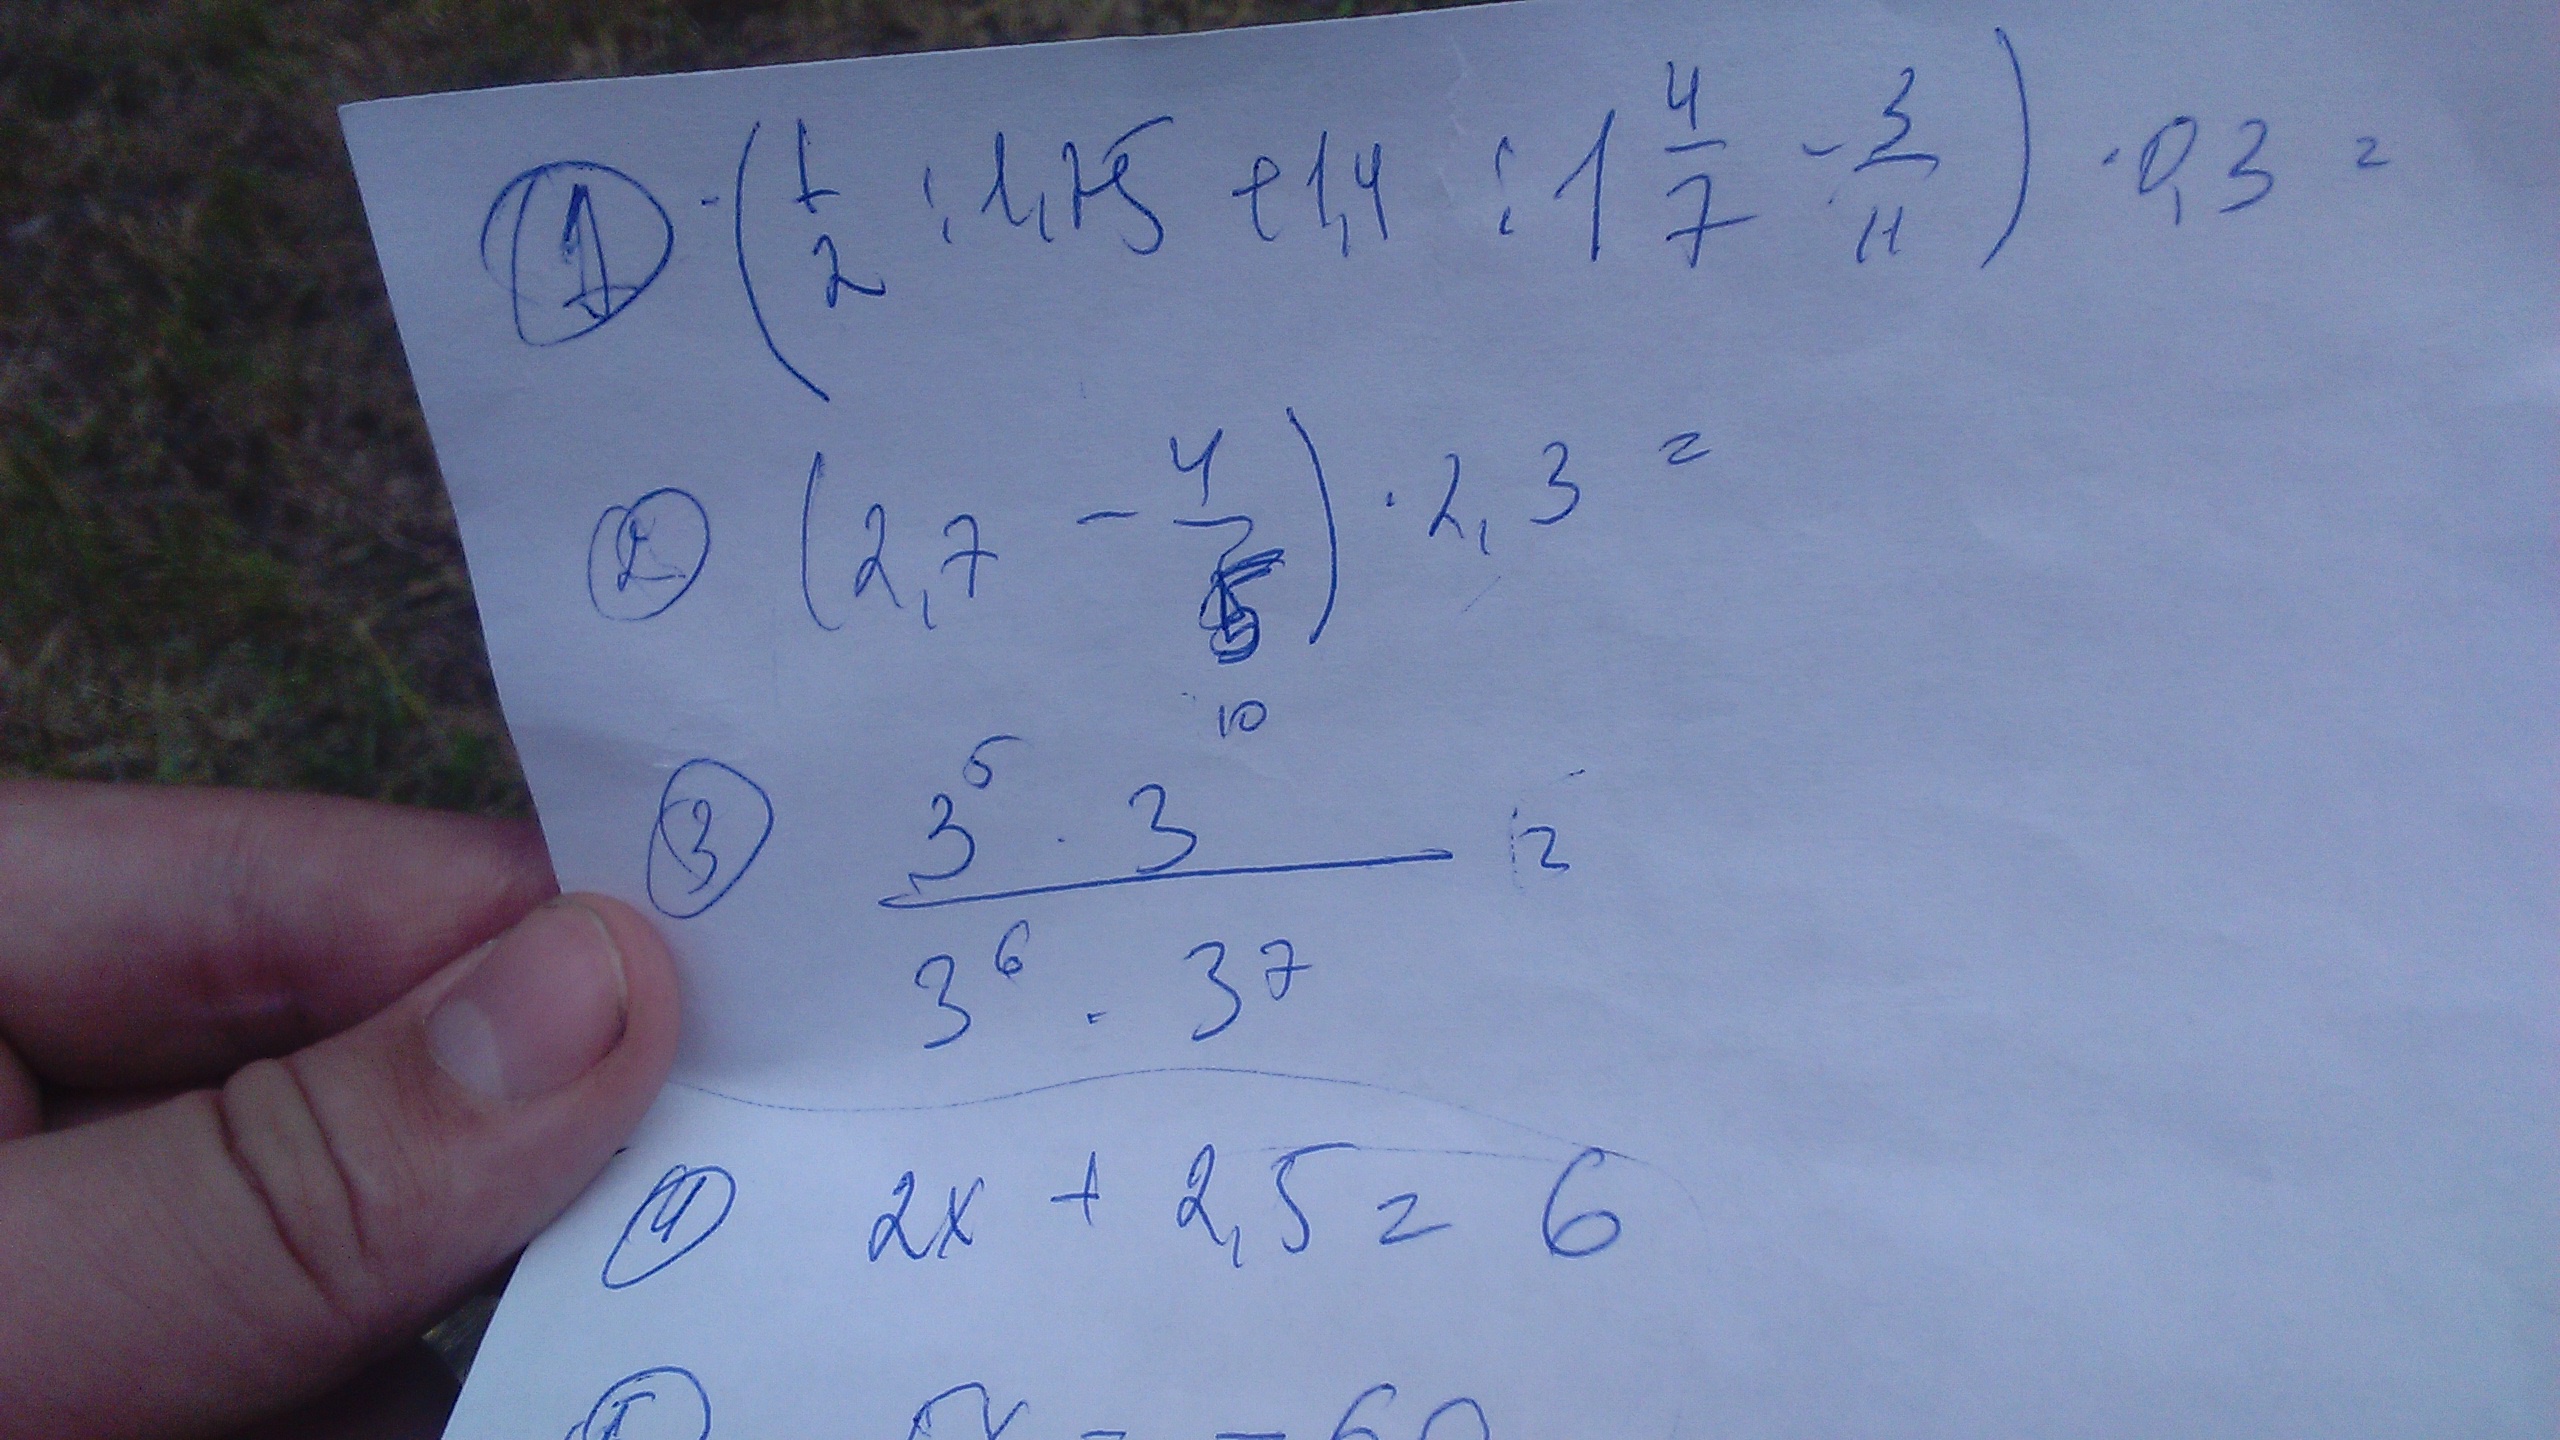 ① (1/2 : 1,75 + 1,4 : 1 4/7 - 3/11) · 0,3 =
② (2,7 - 4/5) · 2,3 =
10
③ 3⁵ · 3 / 3⁶ · 3⁷ =
④ 2x + 2,5 = 6
⑤ 5x = -60